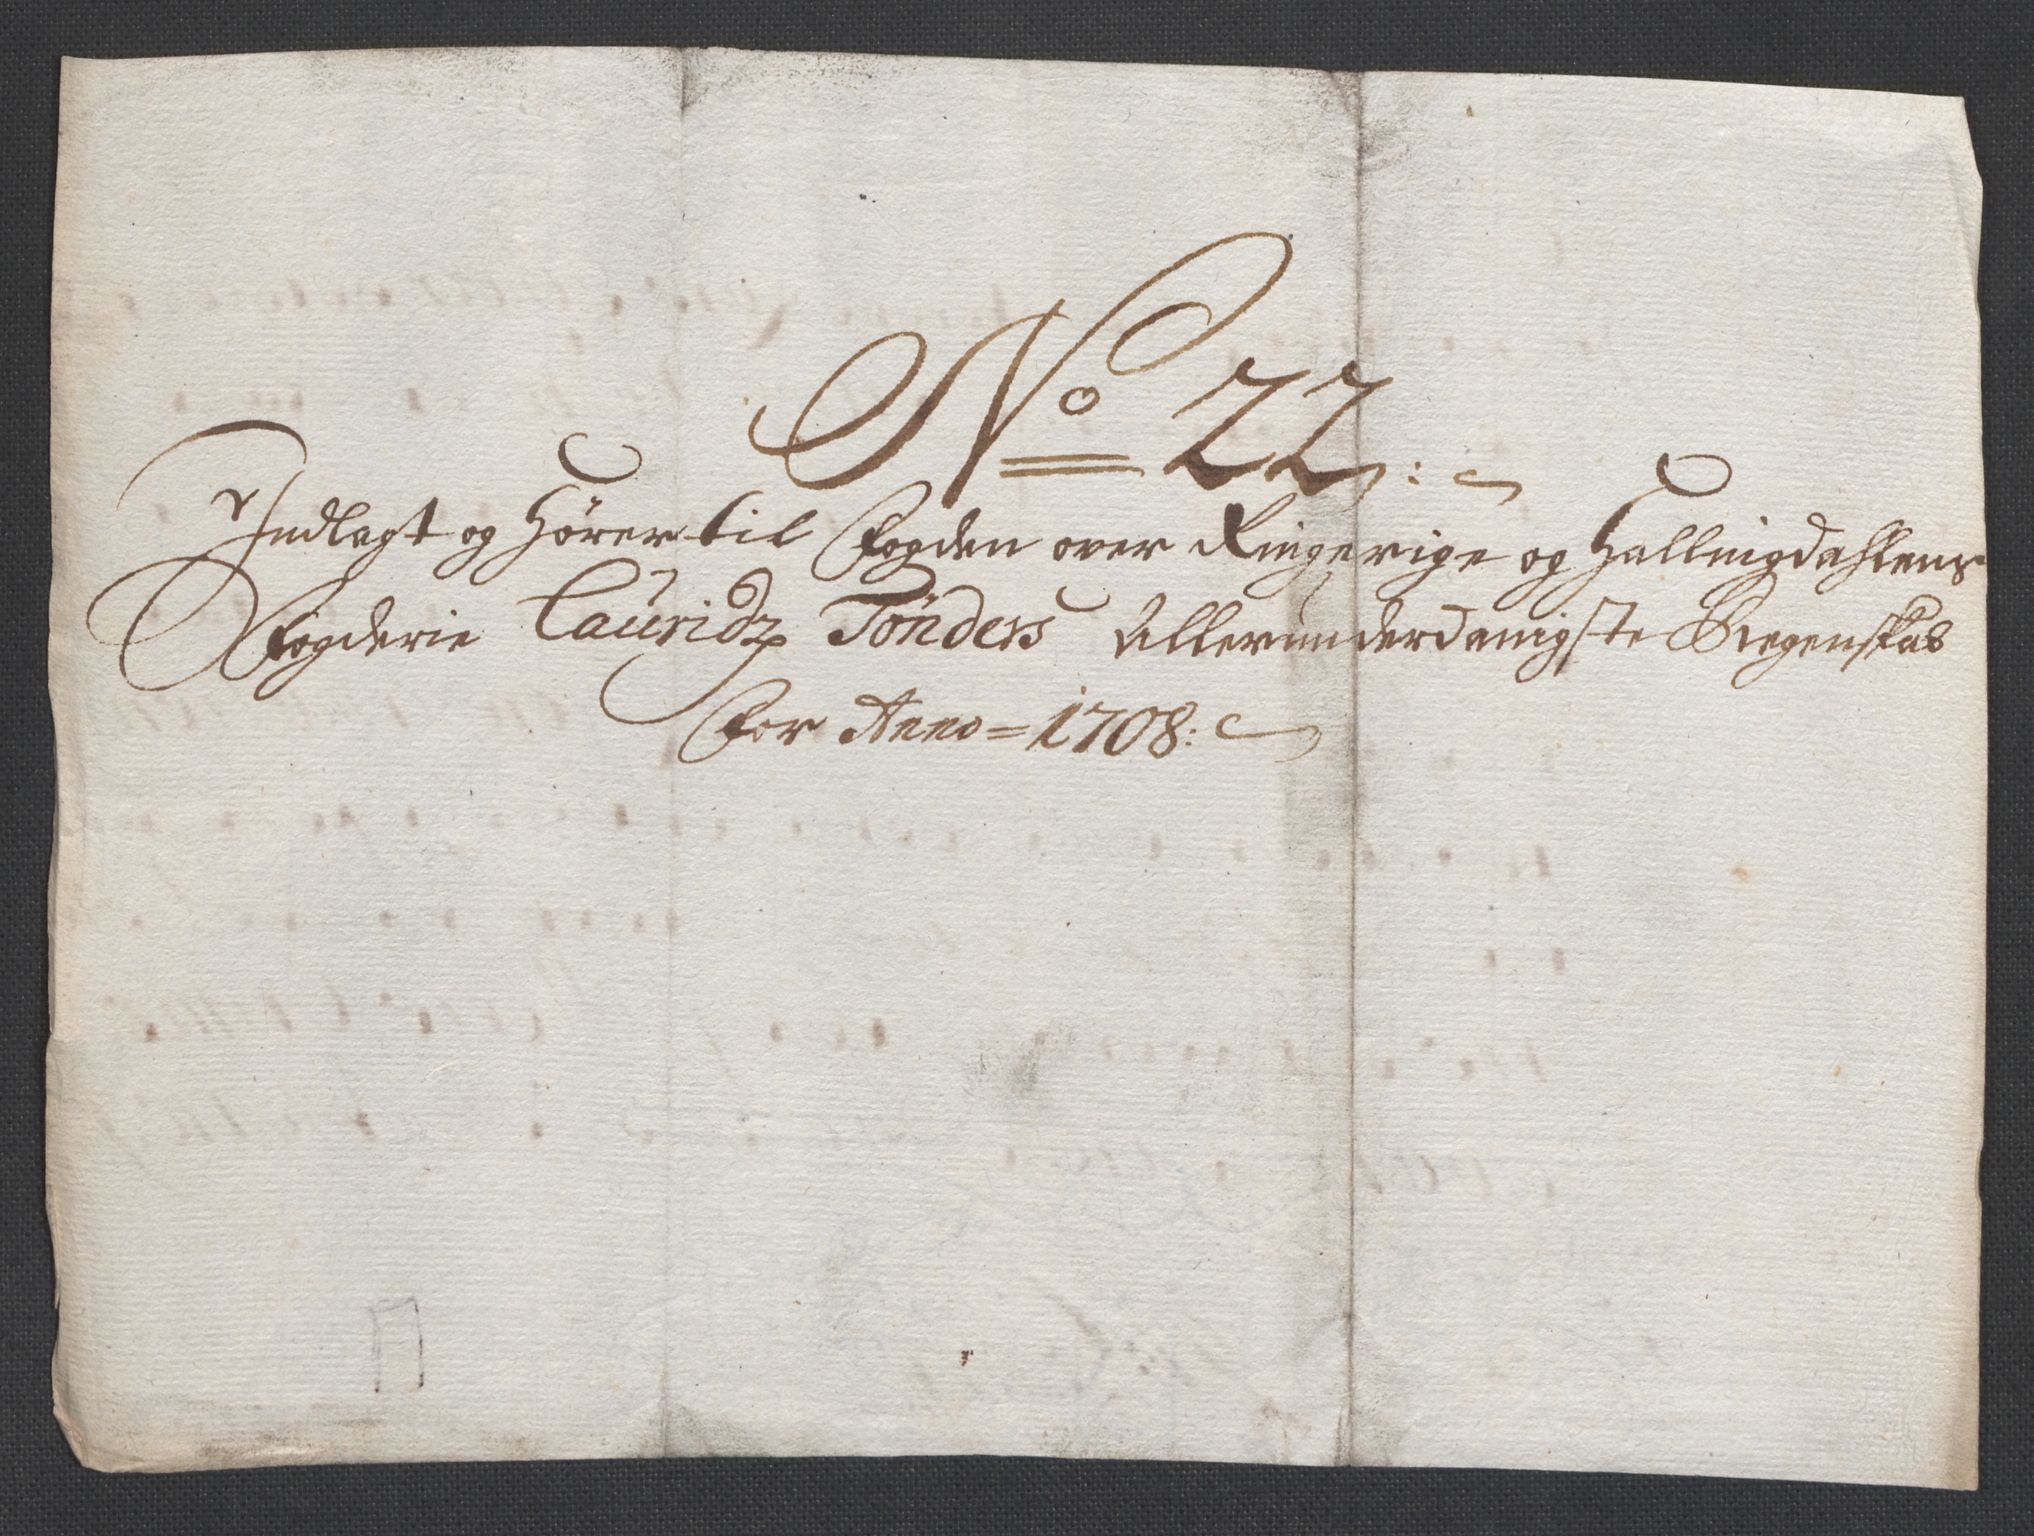 No 22:
Indlagt og Hører til Fogden over Ringerige og Hallingdahlens
Fogderie Lauridz Tönders Allerunderdanigste Regenskab
for Anno = 1708: